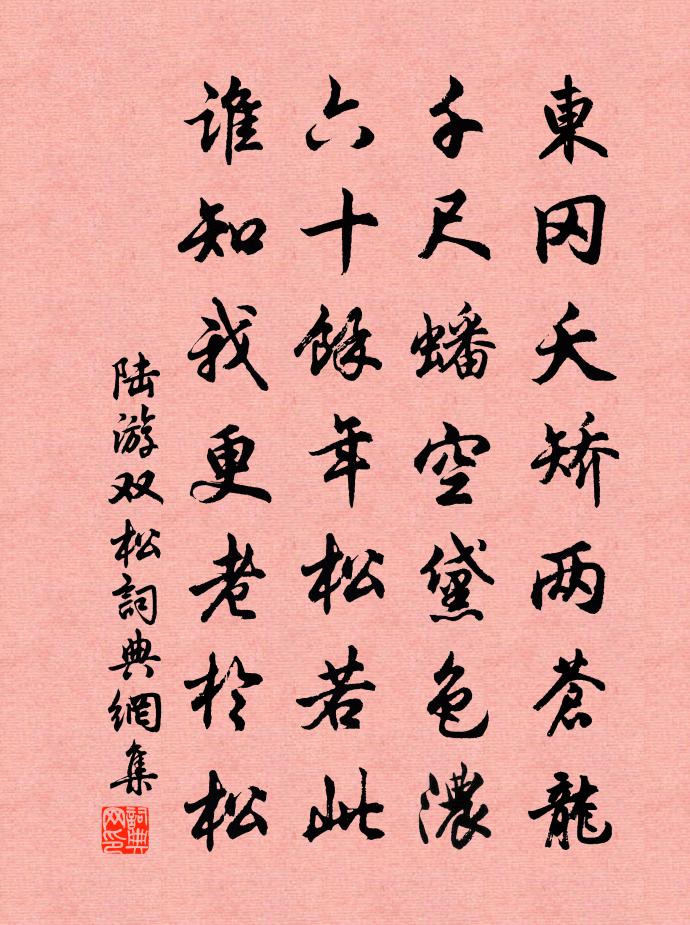 東冈夭矫两蒼龍
千尺蟠空黛色濃
六十餘年松若此
谁知我更老於松
陆游双松詞典網集
詞典网印